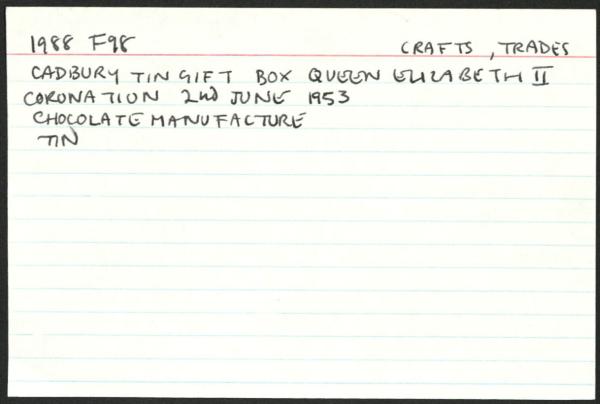 1988 F98 CRAFTS, TRADES
CADBURY TIN GIFT BOX QUEEN ELIZABETH II
CORONATION 2nd JUNE 1953
CHOCOLATE MANUFACTURE
TIN